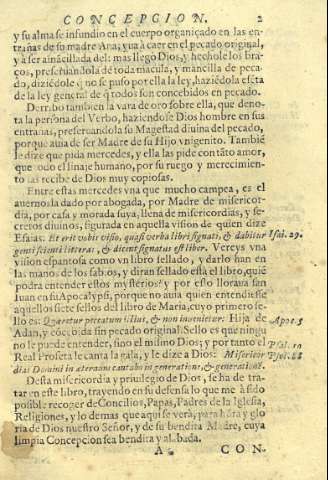 CONCEPCION. 2
y su alma se infundio en el cuerpo organiçado en las en-
trañas de su madre Ana; yua à caer en el pecado original,
y à ser amãcillada del: mas llegò Dios, y hechole los bra-
ços, preseruandola de toda macula, y mancilla de peca-
do, diziẽdole q̃ no se puso por ella la ley, haziẽdola esẽta
de la ley general de q̃ todos son concebidos en pecado.
Derribo tambien la vara de oro sobre ella, que deno-
ta la persona del Verbo, haziendose Dios hombre en sus
entrañas, preseruandola su Magestad diuina del pecado,
porque auia de ser Madre de su Hijo vnigenito. Tambiẽ
le dize que pida mercedes, y ella las pide con tãto amor,
que todo el linaje humano, por su ruego y merecimien-
to las recibe de Dios muy copiosas.
Entre estas mercedes vna que mucho campea, es el
auernosla dado por abogada, por Madre de misericor-
dia, por casa y morada suya, llena de misericordias, y se-
cretos diuinos, figurada en aquella vision de quien dize
Esaias. Et erit vobis visio, quasi verba libri signati, & dabitur Isai. 29.
scienti litteras, & dicent signatus est liber. Vereys vna
vision espantosa como vn libro sellado, y darlo han en
las manos de los sabios, y diran sellado està el libro, quiẽ
podra entender estos mysterios? y por esto lloraua san
Iuan en su Apocalypsi, porque no auia quien entendiesse
aquellos siete sellos del libro de Maria, cuyo primero se-
llo es: Quæretur peccatum illius, & non inuenietur. Hija de Apoc. 5
Adan, y cõcebida sin pecado original. Sello es que ningu
no le puede entender, sino el mismo Dios; y por tanto el
Real Profeta le canta la gala, y le dize a Dios: Misericor Psal. 88
dias Domini in æternum cantabo in generatione, & generationẽ.
Desta misericordia y priuilegio de Dios, se ha de tra-
tar en este libro, trayendo en su defensa lo que me à sido
posible recoger de Concilios, Papas, Padres de la Iglesia,
Religiones, y lo demas que aqui se verà, para hõra y glo
ria de Dios nuestro Señor, y de su bendita Madre, cuya
limpia Concepcion sea bendita y alabada.
A CON-